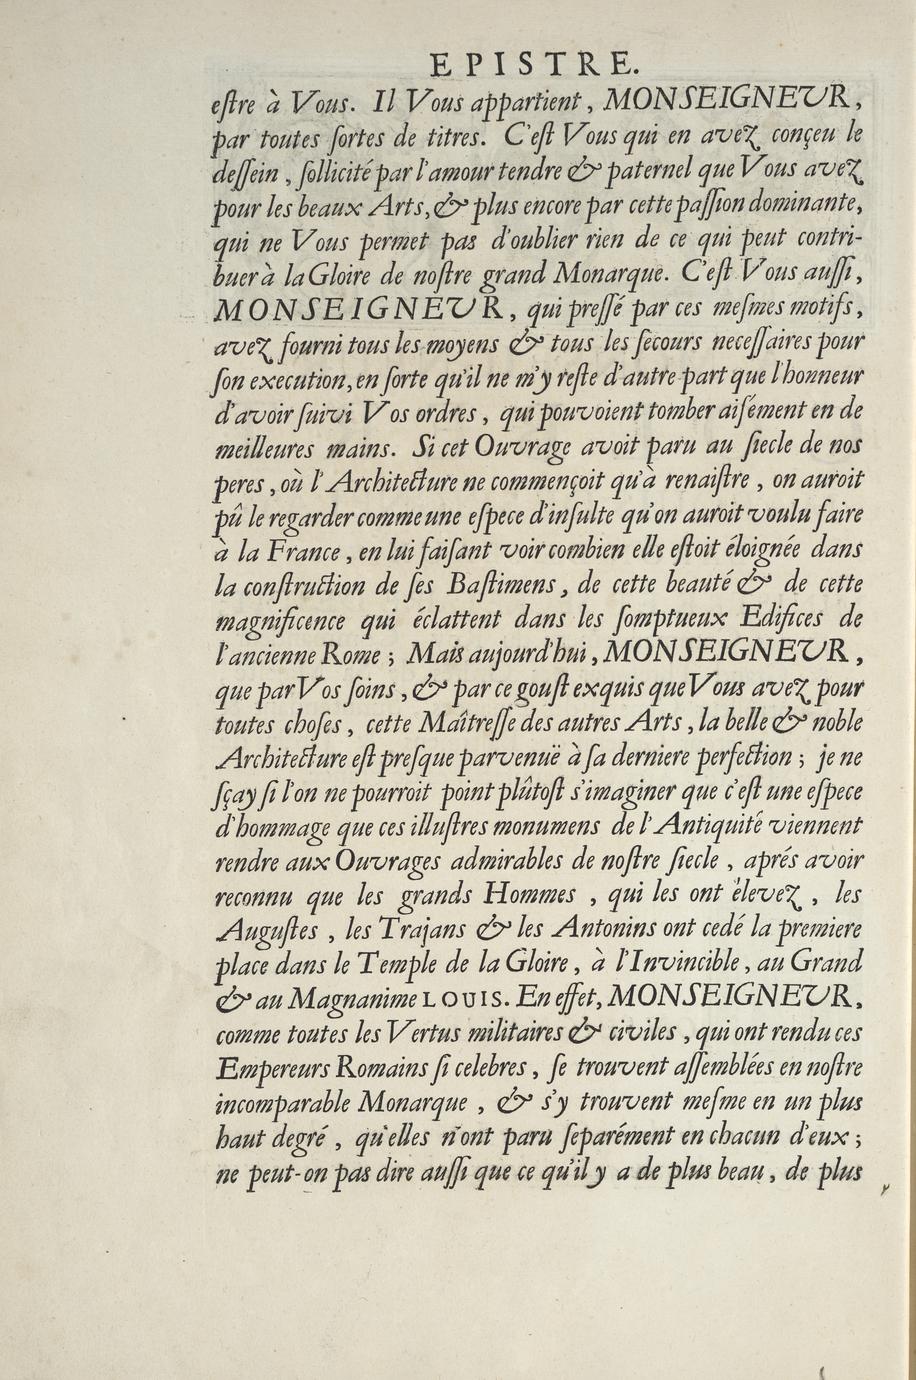 EPISTRE.
eſtre à Vous. Il Vous appartient, MONSEIGNEUR,
par toutes ſortes de titres. C'eſt Vous qui en avez conçeu le
deſſein, ſollicité par l'amour tendre & paternel que Vous avez
pour les beaux Arts, & plus encore par cette paſſion dominante,
qui ne Vous permet pas d'oublier rien de ce qui peut contri-
buer à la Gloire de noſtre grand Monarque. C'eſt Vous auſſi,
MONSEIGNEUR, qui preſſé par ces meſmes motifs,
avez fourni tous les moyens & tous les ſecours neceſſaires pour
ſon execution, en ſorte qu'il ne m'y reſte d'autre part que l'honneur
d'avoir ſuivi Vos ordres, qui pouvoient tomber aiſément en de
meilleures mains. Si cet Ouvrage avoit paru au ſiecle de nos
peres, où l'Architecture ne commençoit qu'à renaiſtre, on auroit
pû le regarder comme une eſpece d'inſulte qu'on auroit voulu faire
à la France, en lui faiſant voir combien elle eſtoit éloignée dans
la conſtruction de ſes Baſtimens, de cette beauté & de cette
magnificence qui éclattent dans les ſomptueux Edifices de
l'ancienne Rome; Mais aujourd'hui, MONSEIGNEUR,
que par Vos ſoins, & par ce gouſt exquis que Vous avez pour
toutes choſes, cette Maîtreſſe des autres Arts, la belle & noble
Architecture eſt preſque parvenuë à ſa derniere perfection; je ne
ſçay ſi l'on ne pourroit point plûtoſt s'imaginer que c'eſt une eſpece
d'hommage que ces illuſtres monumens de l'Antiquité viennent
rendre aux Ouvrages admirables de noſtre ſiecle, aprés avoir
reconnu que les grands Hommes, qui les ont élevez, les
Auguſtes, les Trajans & les Antonins ont cedé la premiere
place dans le Temple de la Gloire, à l'Invincible, au Grand
& au Magnanime LOUIS. En effet, MONSEIGNEUR,
comme toutes les Vertus militaires & civiles, qui ont rendu ces
Empereurs Romains ſi celebres, ſe trouvent aſſemblées en noſtre
incomparable Monarque, & s'y trouvent meſme en un plus
haut degré, qu'elles n'ont paru ſeparément en chacun d'eux;
ne peut-on pas dire auſſi que ce qu'il y a de plus beau, de plus